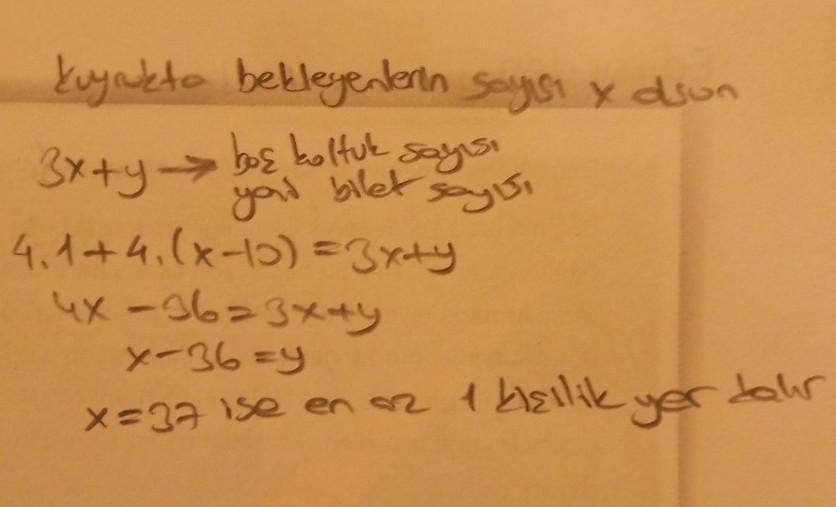 kuyrukta bekleyenlerin sayısı x olsun
3x+y → boş koltuk sayısı
yani bilet sayısı
4.1+4.(x-10)=3x+y
4x-36=3x+y
x-36=y
x=37 ise en az 1 kişilik yer kalır